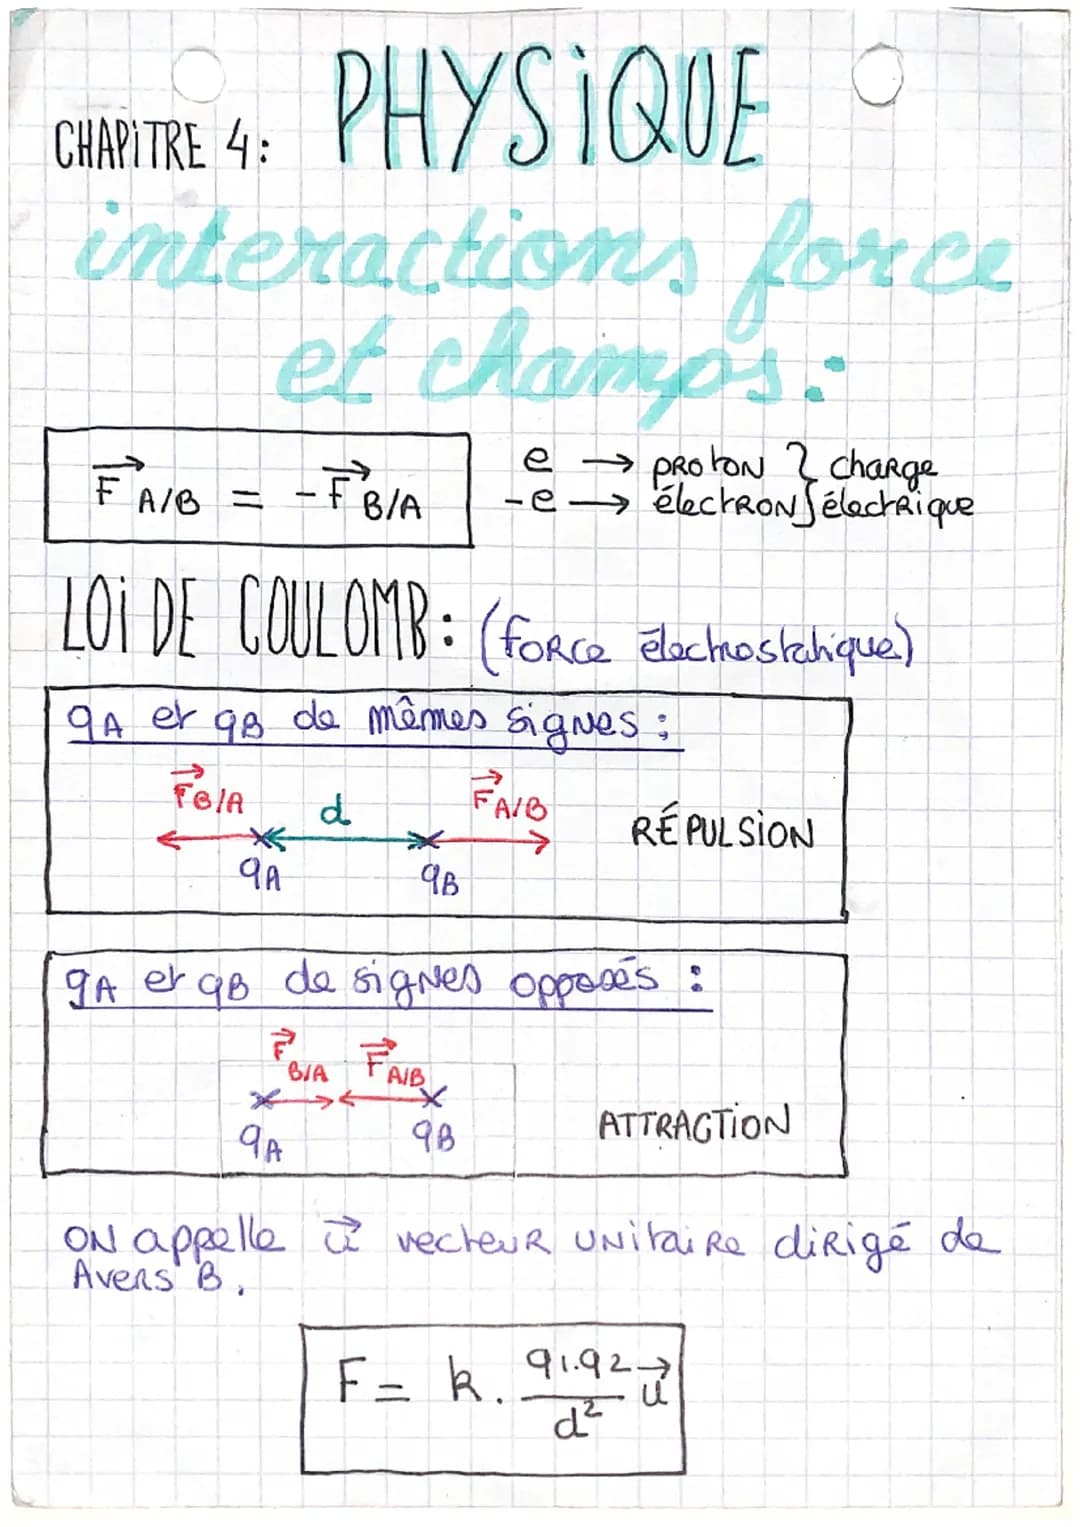 PHYSiQUE
CHAPiTRE 4:
interactions force
et champs:
F⃗ A/B = -F⃗ B/A
e → PROtON } charge
-e → électRON } électrique
LOi DE COULOMB: (force électrostatique)
qA et qB de mêmes signes :
F⃗B/A d F⃗A/B
RÉPULSiON
qA qB
qA et qB de signes opposés :
F⃗ B/A F⃗ A/B
ATTRACTiON
qA qB
ON appelle u⃗ vecteur unitaire dirigé de
A vers B.
F = k. q1.q2/d² u⃗